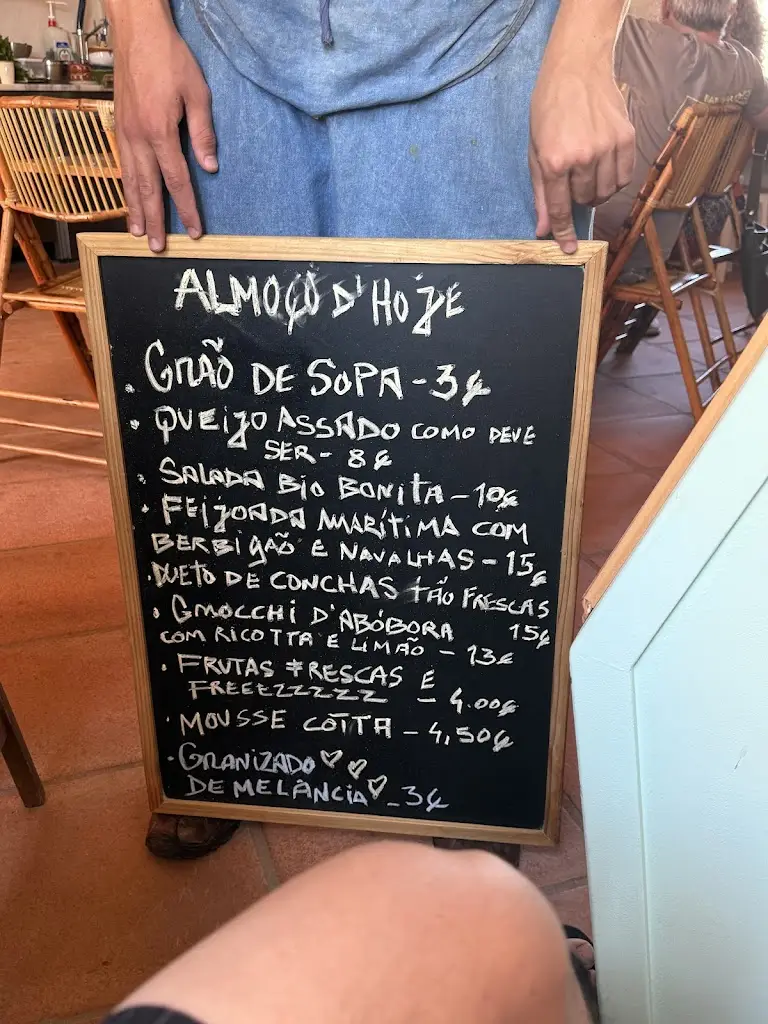 ALMOÇO D'HOJE
• GRÃO DE SOPA - 3€
• QUEIJO ASSADO COMO DEVE
SER - 8€
• SALADA BIO BONITA - 10€
• FEIJOADA MARÍTIMA COM
BERBIGÃO E NAVALHAS - 15€
• DUETO DE CONCHAS TÃO FRESCAS
15€
• GMOCCHI D'ABÓBORA
COM RICOTTA E LIMÃO - 13€
• FRUTAS FRESCAS E
FREEEZZZZZZ - 4.00€
• MOUSSE COTTA - 4,50€
• GRANIZADO ♡♡
DE MELÂNCIA ♡ - 3€